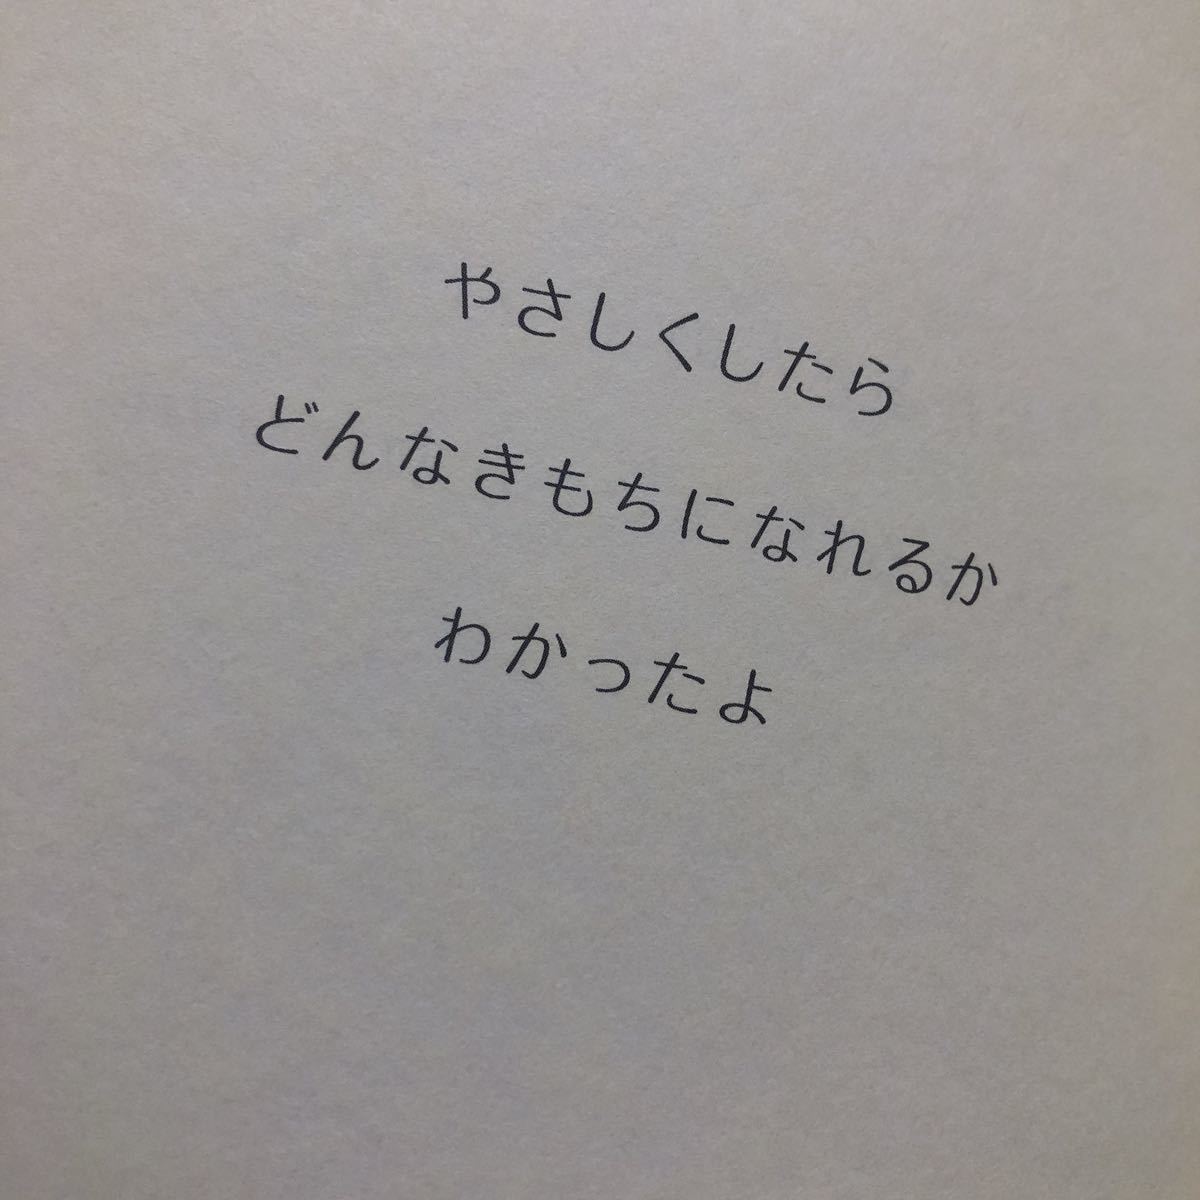 やさしくしたら
どんなきもちになれるか
わかったよ